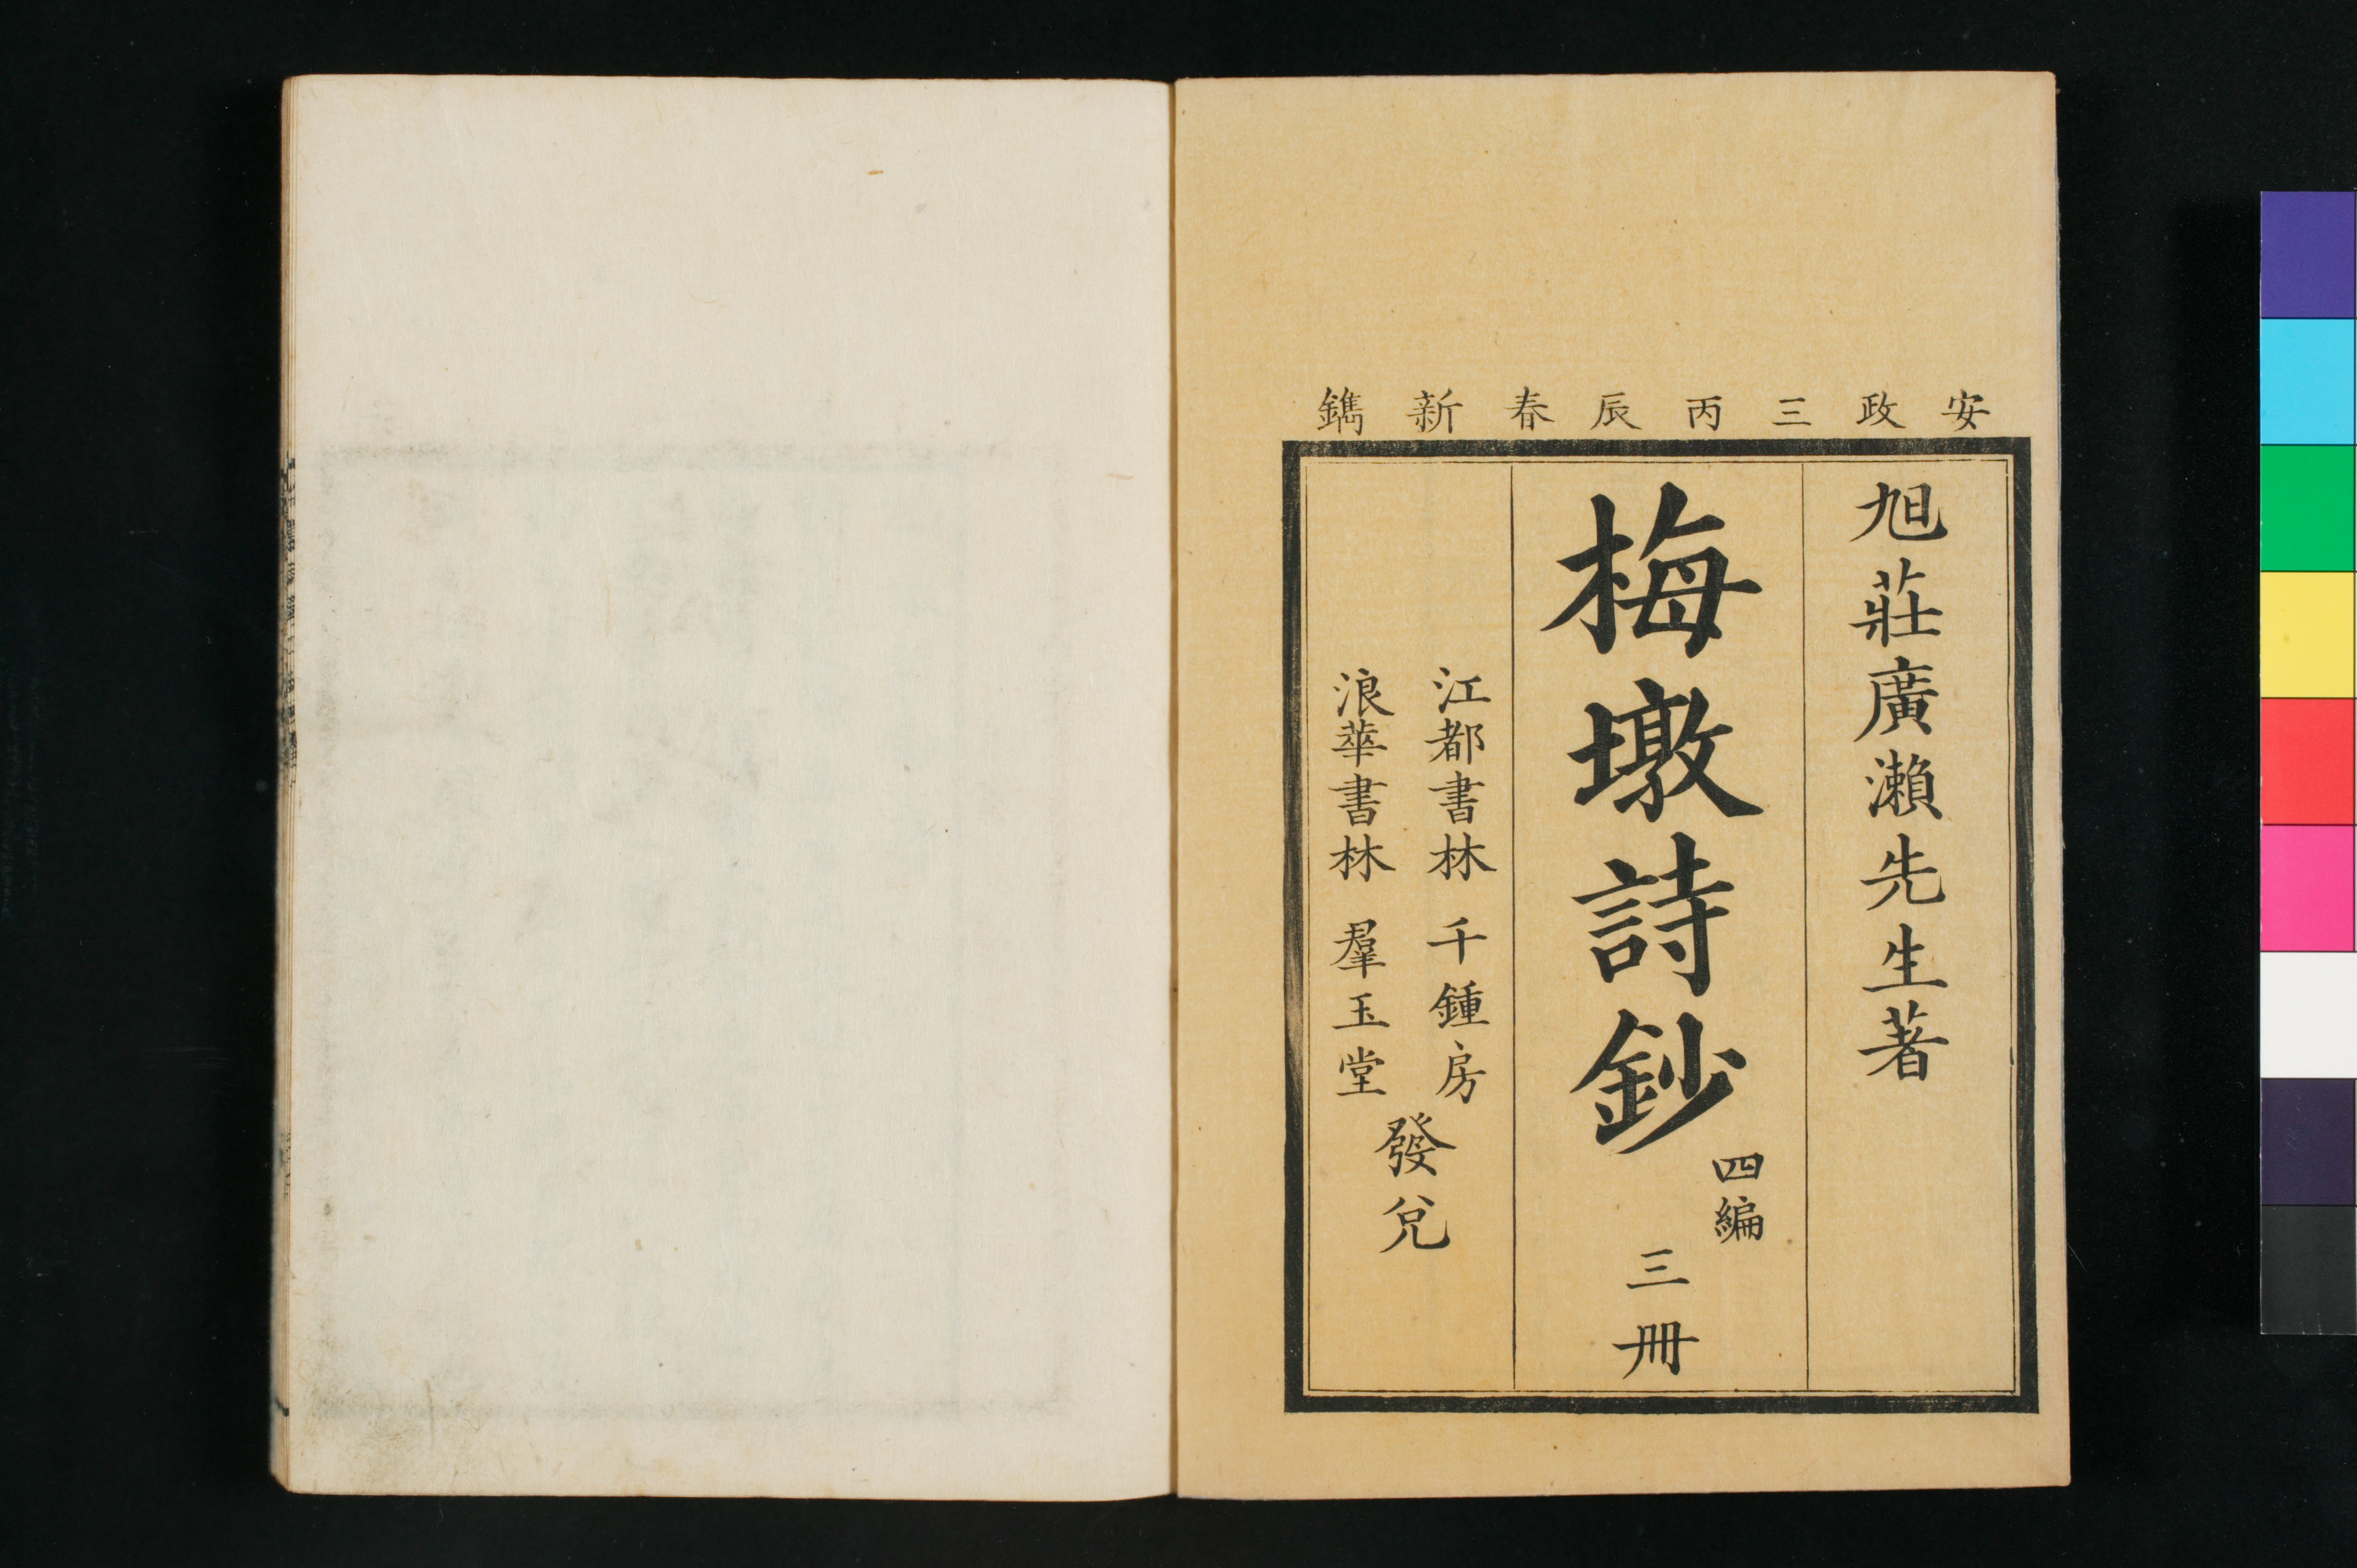 安政三丙辰春新鐫
旭莊廣瀨先生著
梅墩詩鈔
四編
三冊
江都書林 千鍾房
浪華書林 羣玉堂
發兌